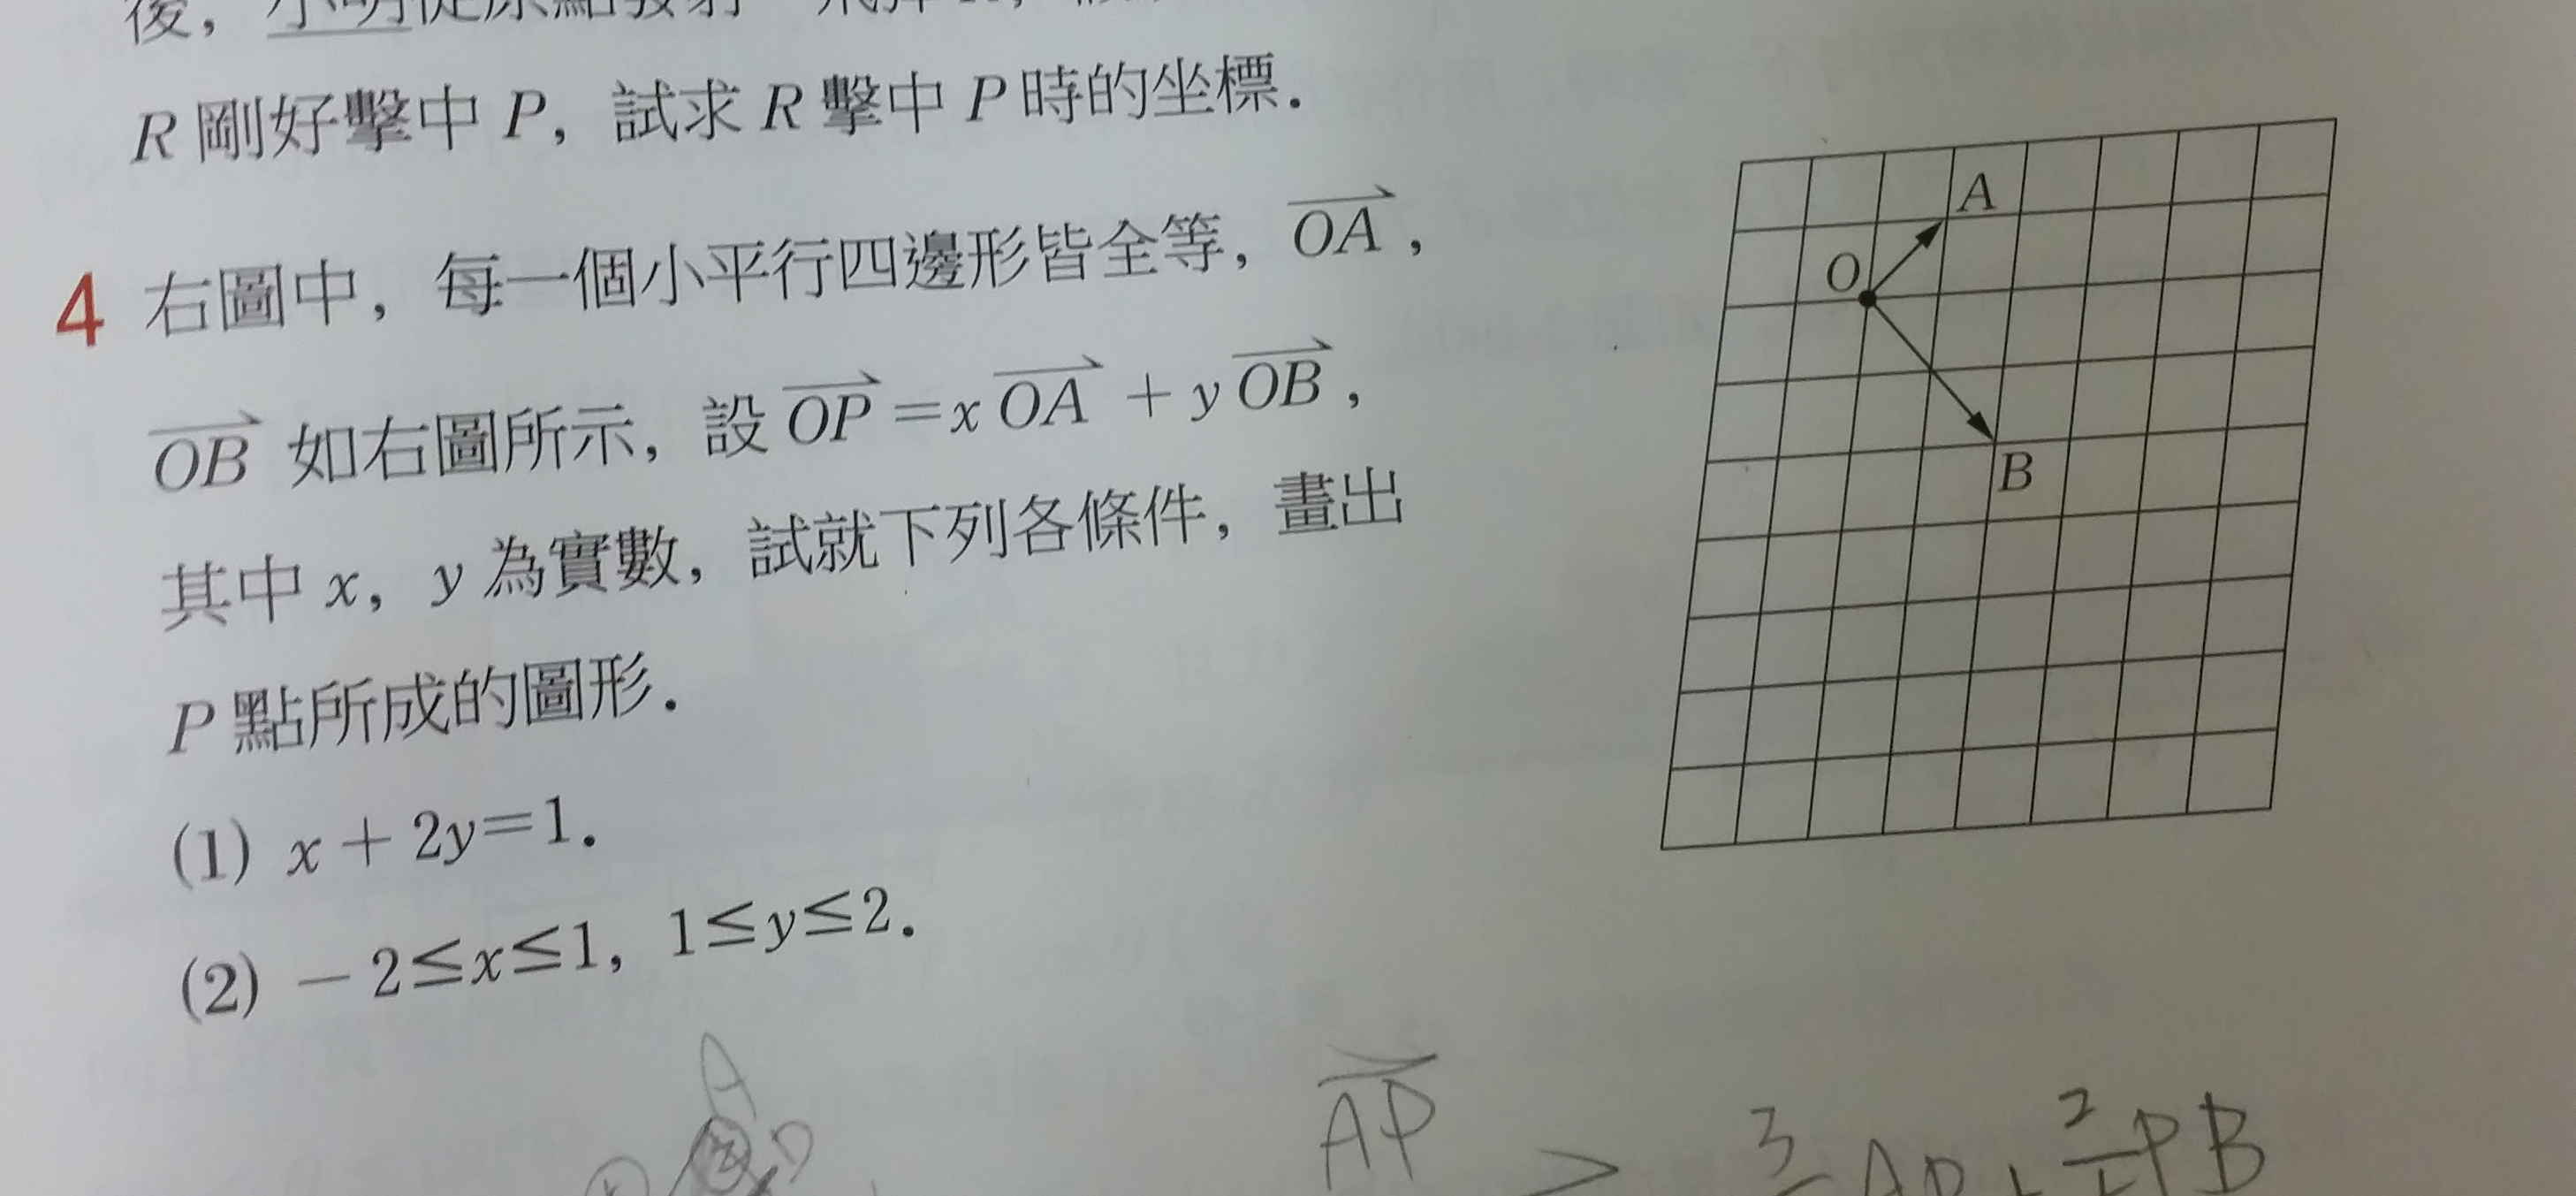 後，小明從原點發射一飛彈 R，
R 剛好擊中 P，試求 R 擊中 P 時的坐標．
4 右圖中，每一個小平行四邊形皆全等，OA，
OB 如右圖所示，設 OP =x OA + y OB，
其中 x，y 為實數，試就下列各條件，畫出
P 點所成的圖形．
(1) x + 2y=1．
(2) －2≦x≦1，1≦y≦2．
A
O
B
A
D
AP
> 3 AP + 2 PB